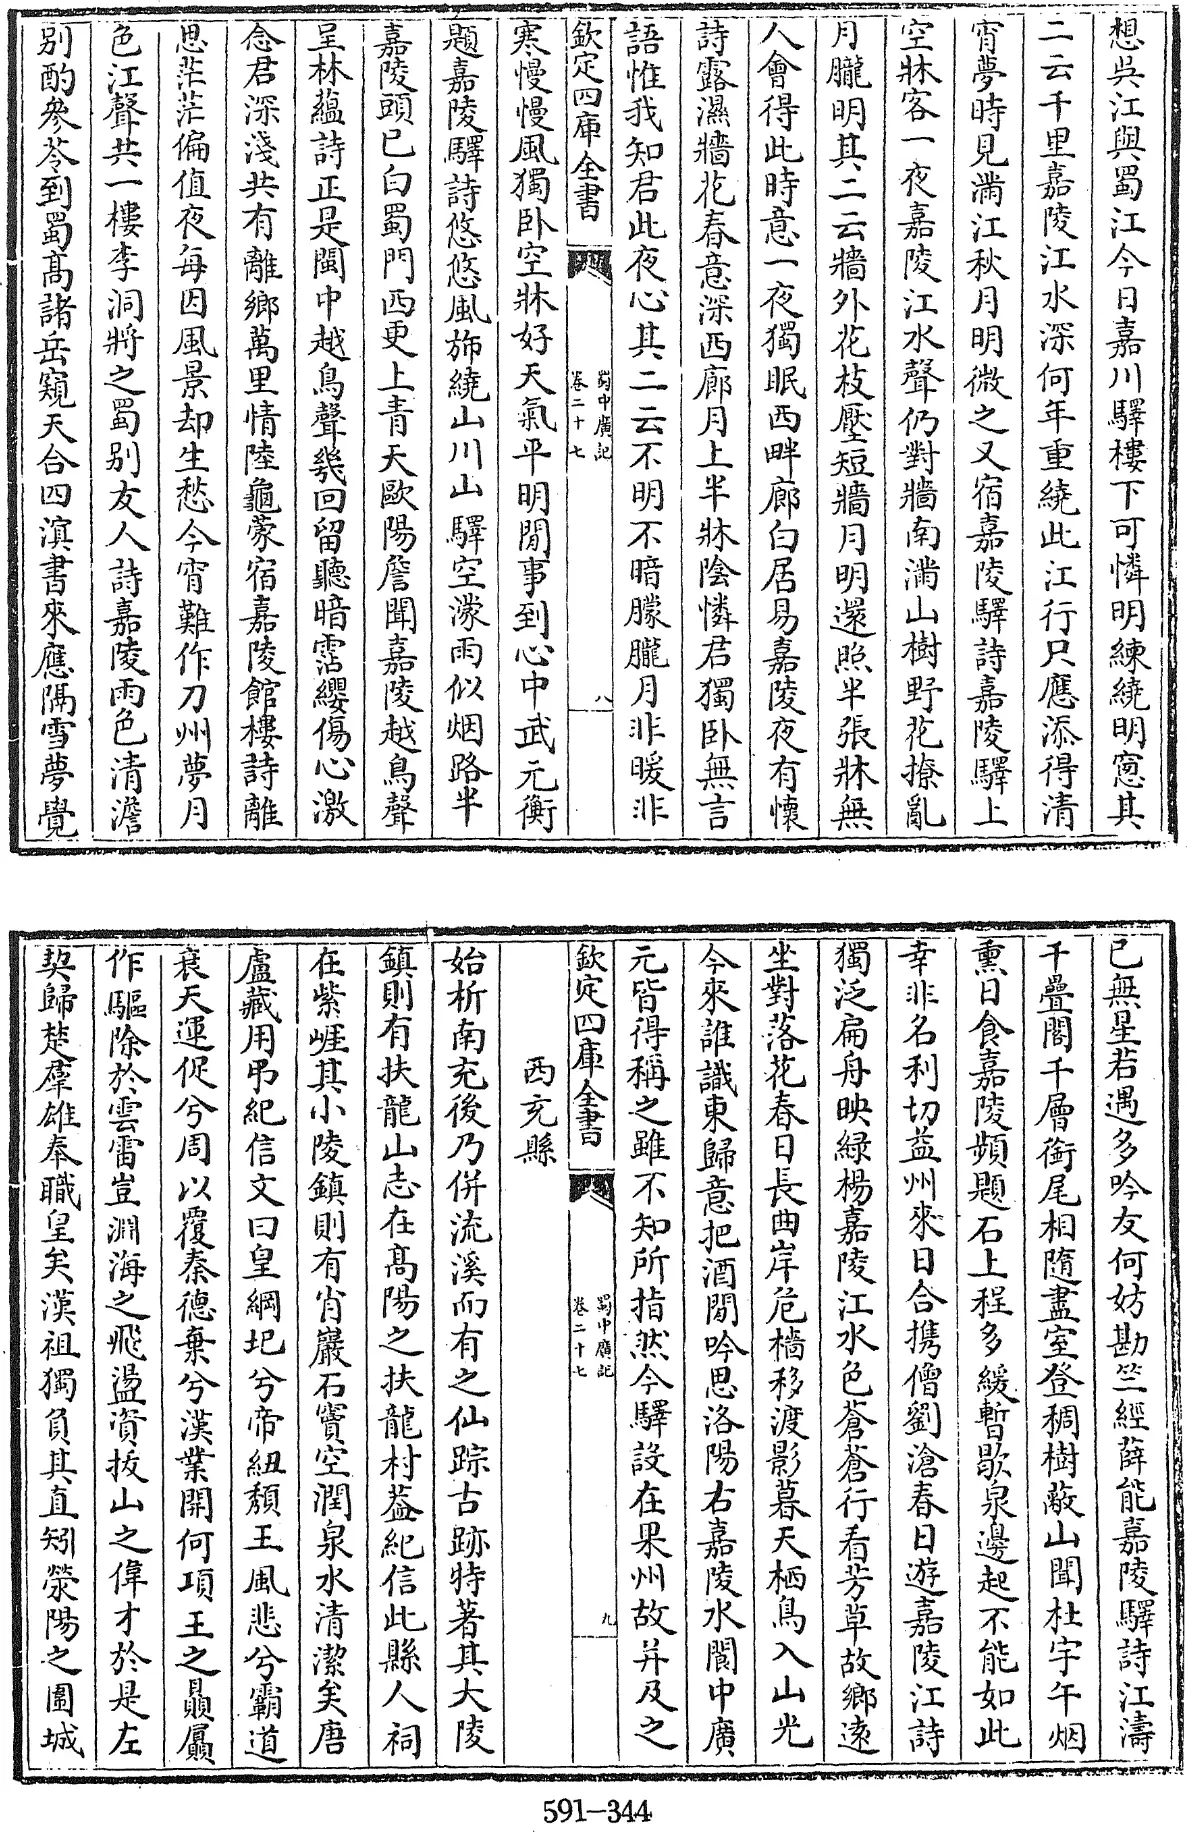 想吳江與蜀江今日嘉川驛樓下可憐明練繞明窓其
二云千里嘉陵江水深何年重繞此江行只應添得清
宵夢時見滿江秋月明微之又宿嘉陵驛詩嘉陵驛上
空牀客一夜嘉陵江水聲仍對牆南滿山樹野花撩亂
月朧明其二云牆外花枝壓短牆月明還照半張牀無
人會得此時意一夜獨眠西畔廊白居易嘉陵夜有懷
詩露濕牆花春意深西廊月上半牀陰憐君獨卧無言
語惟我知君此夜心其二云不明不暗朦朧月非暖非
欽定四庫全書
蜀中廣記
卷二十七
八
寒慢慢風獨卧空牀好天氣平明閒事到心中武元衡
題嘉陵驛詩悠悠風斾繞山川山驛空濛雨似烟路半
嘉陵頭已白蜀門西更上青天歐陽詹聞嘉陵越鳥聲
呈林蘊詩正是閩中越鳥聲幾回留聽暗霑纓傷心激
念君深淺共有離鄉萬里情陸龜蒙宿嘉陵館樓詩離
思茫茫偏值夜每因風景却生愁今宵難作刀州夢月
色江聲共一樓李洞將之蜀別友人詩嘉陵雨色清澹
別酌參苓到蜀髙諸岳窺天合四溟書來應隔雪夢覺
已無星若遇多吟友何妨勘竺經薛能嘉陵驛詩江濤
千疊閣千層銜尾相隨盡室登稠樹蔽山聞杜宇午烟
熏日食嘉陵頻題石上程多緩暫歇泉邊起不能如此
幸非名利切益州來日合携僧劉滄春日遊嘉陵江詩
獨泛扁舟映緑楊嘉陵江水色蒼蒼行看芳草故鄉遠
坐對落花春日長曲岸危檣移渡影暮天栖鳥入山光
今來誰識東歸意把酒閒吟思洛陽右嘉陵水閬中廣
元皆得稱之雖不知所指然今驛設在果州故并及之
欽定四庫全書
蜀中廣記
卷二十七
九
西充縣
始析南充後乃併流溪而有之仙踪古跡特著其大陵
鎮則有扶龍山志在髙陽之扶龍村葢紀信此縣人祠
在紫崕其小陵鎮則有肖巖石竇空潤泉水清潔矣唐
盧藏用弔紀信文曰皇綱圯兮帝紐頽王風悲兮霸道
衰天運促兮周以覆秦德棄兮漢業開何項王之贔屭
作驅除於雲雷豈淵海之飛盪資拔山之偉才於是左
契歸楚羣雄奉職皇矣漢祖獨負其直矧滎陽之圍城
591-344